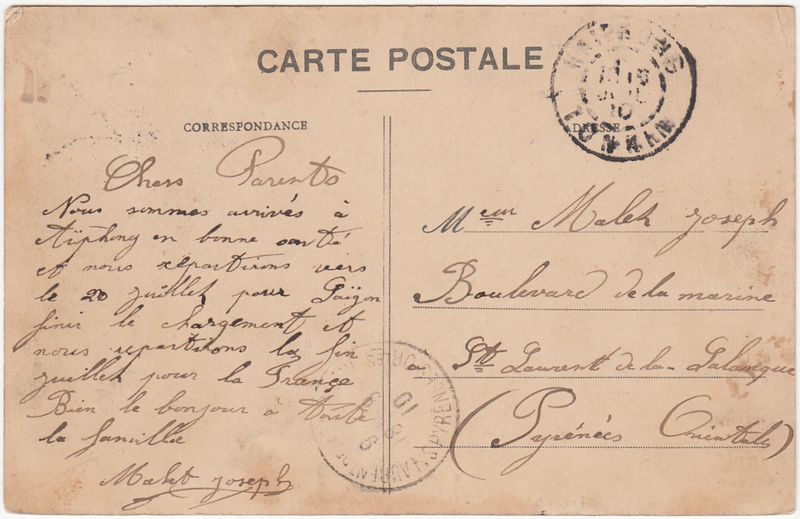 CARTE POSTALE
CORRESPONDANCE
Chers Parents
Nous sommes arrivés à
Aïphong en bonne santé
et nous repartirons vers
le 20 juillet pour Saïgon
finir le chargement et
nous repartirons la fin
juillet pour la France
Bien le bonjour a toute
la famille
Malet Joseph
HAIPHONG
TONKIN
DRESSE
Meur Malet Joseph
Boulevard de la marine
a St Laurent de la Salanque
(Pyrénées Orientales)